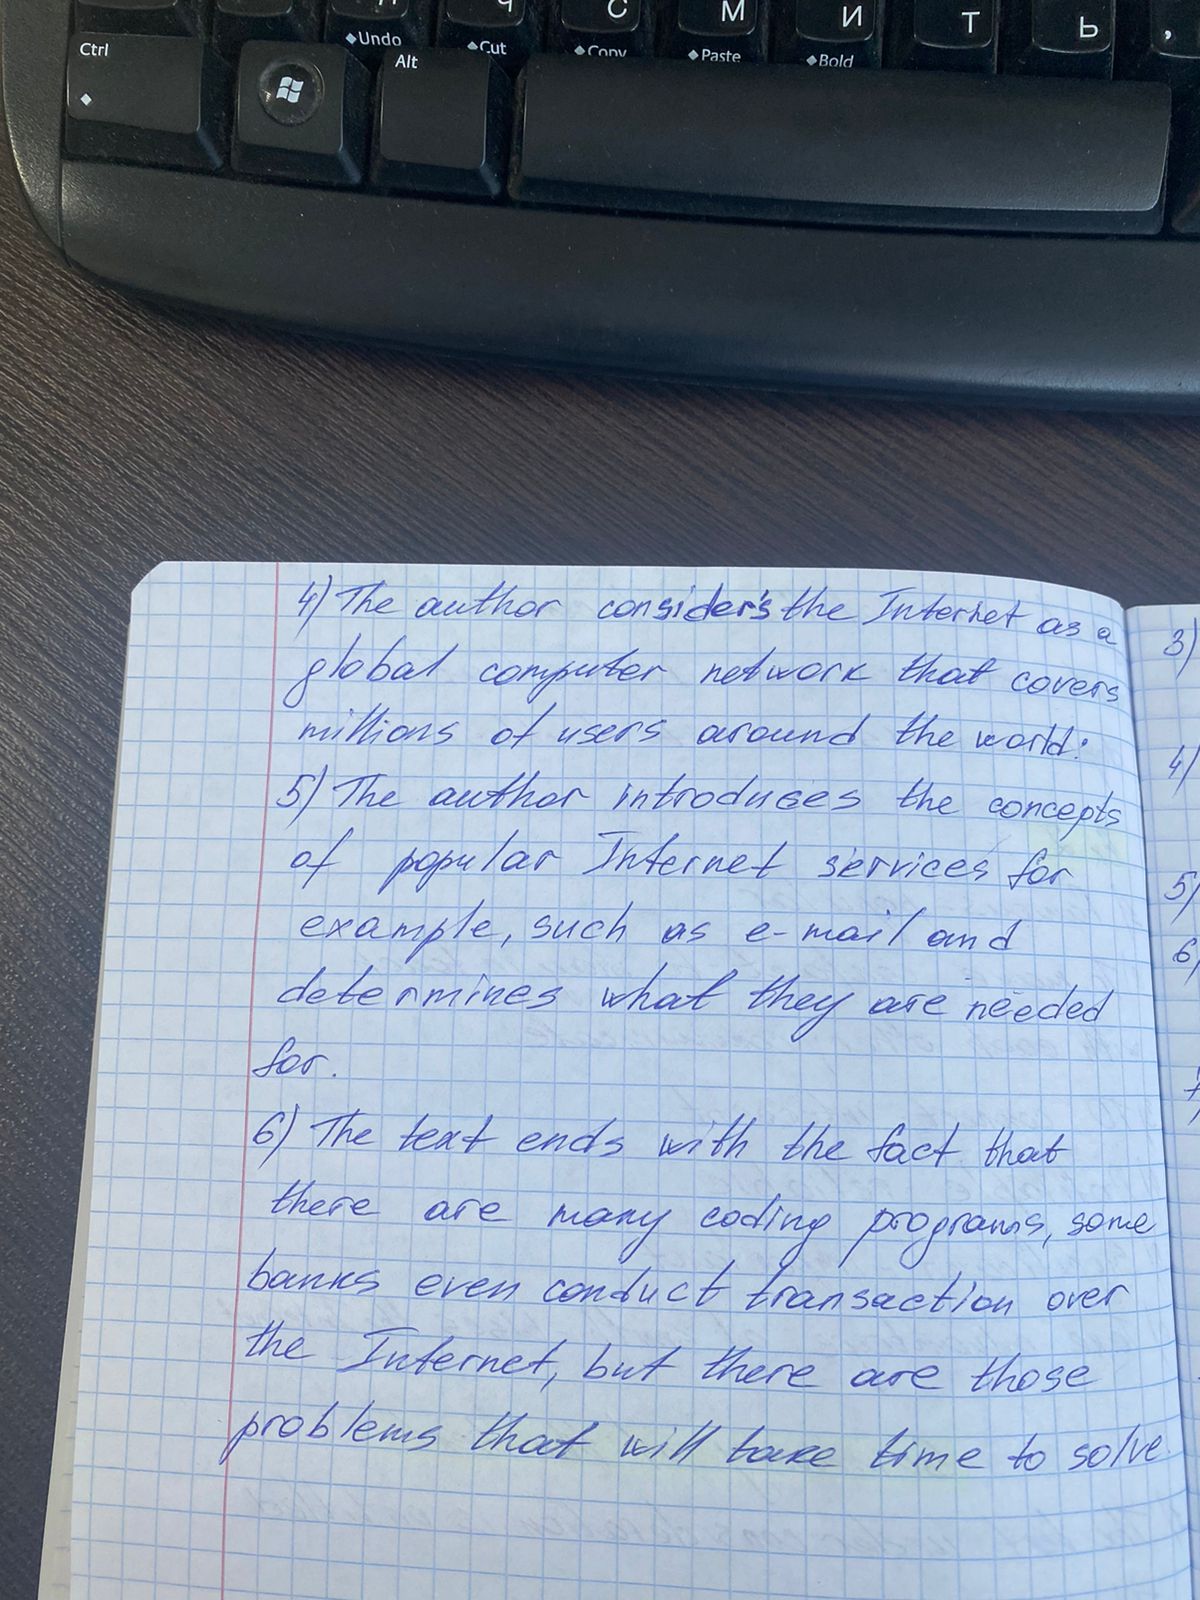 Ч С М И Т Ь ,
Undo Cut Copy Paste Bold
Ctrl Alt
4) The author consider's the Internet as a
global computer network that covers
millions of users around the world.
5) The author introduses the concepts
of popular Internet services for
example, such as e-mail and
determines what they are needed
for.
6) The text ends with the fact that
there are many coding programs, some
banks even conduct transaction over
the Internet, but there are those
problems that will take time to solve.
3)
4)
5)
6)